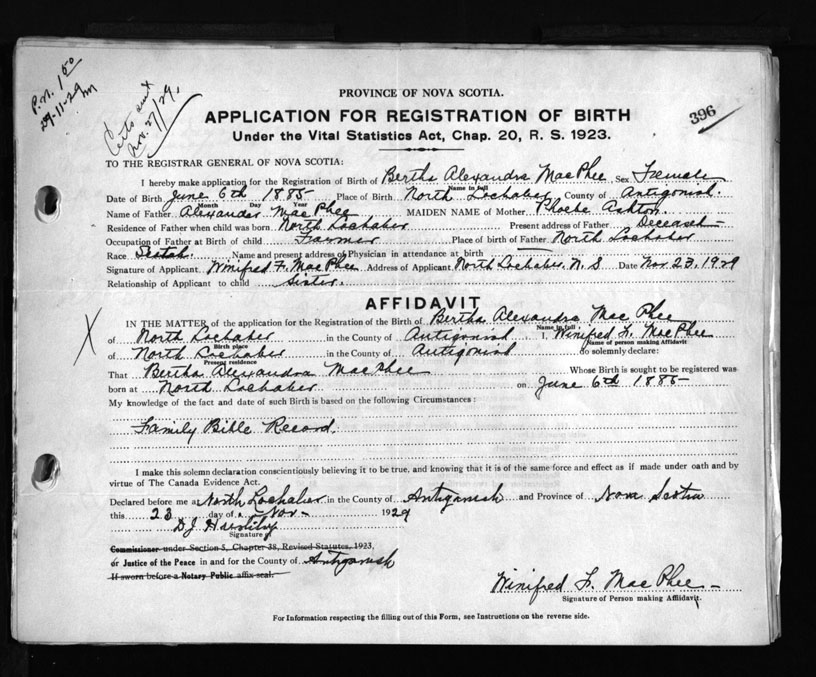 P.N. 1 50
29-11-29
Certs sent
Nov. 27/29,
396
PROVINCE OF NOVA SCOTIA.
APPLICATION FOR REGISTRATION OF BIRTH
Under the Vital Statistics Act, Chap. 20, R. S. 1923.
TO THE REGISTRAR GENERAL OF NOVA SCOTIA:
I hereby make application for the Registration of Birth of Bertha Alexandra MacPhee Sex Female
Name in full
Date of Birth June 6th 1885 Place of Birth North Lochaber County of Antigonish.
Month Day Year
Name of Father Alexander MacPhee MAIDEN NAME of Mother Phoebe Ashton.
Residence of Father when child was born North Lochaber Present address of Father Deceased
Occupation of Father at Birth of child Farmer Place of birth of Father North Lochaber
Race Scotch. Name and present address of Physician in attendance at birth
Signature of Applicant Winifred F. MacPhee Address of Applicant North Lochaber, N. S Date Nov 23, 1929
Relationship of Applicant to child Sister.
AFFIDAVIT
IN THE MATTER of the application for the Registration of the Birth of Bertha Alexandra MacPhee
Name in full
X
of North Lochaber in the County of Antigonish I, Winifred F. MacPhee
Birth place Name of person making Affidavit
of North Lochaber in the County of Antigonish do solemnly declare:
Present residence
That Bertha Alexandra MacPhee Whose Birth is sought to be registered was
born at North Lochaber on June 6th 1885
My knowledge of the fact and date of such Birth is based on the following Circumstances:
Family Bible Record.
I make this solemn declaration conscientiously believing it to be true, and knowing that it is of the same force and effect as if made under oath and by
virtue of The Canada Evidence Act.
Declared before me at North Lochaber in the County of Antigonish and Province of Nova Scotia
this 23 day of Nov- 1929
D J
Signature of
Commissioner under Section 5, Chapter 38, Revised Statutes, 1923,
or Justice of the Peace in and for the County of Antigonish
If sworn before a Notary Public affix seal.
Winifred F. MacPhee
Signature of Person making Affidavit.
For Information respecting the filling out of this Form, see Instructions on the reverse side.